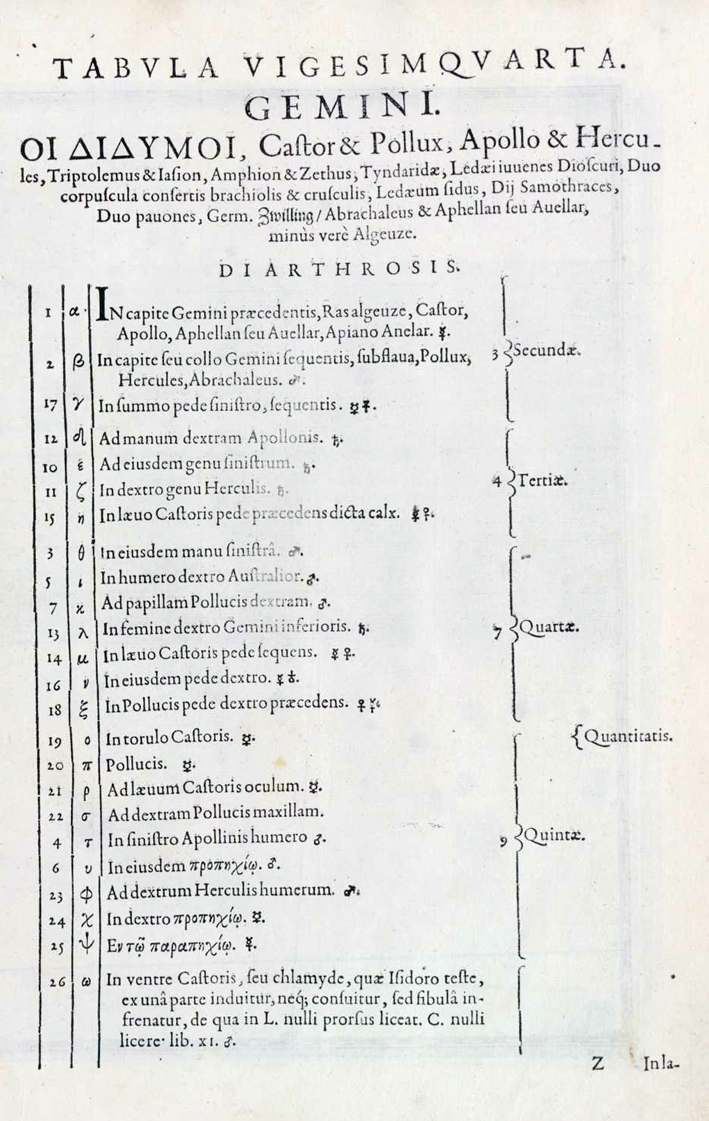 TABVLA VIGESIMQVARTA.
GEMINI.
ΟΙ ΔΙΔΥΜΟΙ, Caſtor & Pollux, Apollo & Hercu-
les, Triptolemus & Iaſion, Amphion & Zethus, Tyndaridæ, Ledæi iuuenes Dioſcuri, Duo
corpuſcula conſertis brachiolis & cruſculis, Ledæum ſidus, Dij Samothraces,
Duo pauones, Germ. Zwilling/ Abrachaleus & Aphellan ſeu Auellar,
minùs verè Algeuze.
DIARTHROSIS.
1 α. IN capite Gemini præcedentis, Ras algeuze, Caſtor,
Apollo, Aphellan ſeu Auellar, Apiano Anelar. ☿.
2 β In capite ſeu collo Gemini ſequentis, ſubflaua, Pollux, 3 {Secundæ.
Hercules, Abrachaleus. ♂.
17 γ In ſummo pede ſiniſtro, ſequentis. ☿ ♀.
12 δ Ad manum dextram Apollonis. ♄.
10 ε Ad eiusdem genu ſiniſtrum. ♄.
11 ζ In dextro genu Herculis. ♄. 4 {Tertiæ.
15 η In læuo Caſtoris pede præcedens dicta calx. ☿ ♀.
3 θ In eiusdem manu ſiniſtrâ. ♂.
5 ι In humero dextro Auſtralior. ♂.
7 κ Ad papillam Pollucis dextram. ♂.
13 λ In femine dextro Gemini inferioris. ♄. 7 {Quartæ.
14 μ In læuo Caſtoris pede ſequens. ☿ ♀.
16 ν In eiusdem pede dextro.
18 ξ In Pollucis pede dextro præcedens.
19 ο In torulo Caſtoris. ☿. {Quantitatis.
20 π Pollucis. ☿.
21 ρ Ad læuum Caſtoris oculum. ☿.
22 σ Ad dextram Pollucis maxillam.
4 τ In ſiniſtro Apollinis humero ♂. 9 {Quintæ.
6 υ In eiusdem προπηχίῳ. ♂.
23 φ Ad dextrum Herculis humerum. ♂.
24 χ In dextro προπηχίῳ. ☿.
25 ψ Εν τῷ παραπηχίῳ. ☿.
26 ω In ventre Caſtoris, ſeu chlamyde, quæ Iſidoro teſte,
ex unâ parte induitur, neq; conſuitur, ſed fibulâ in-
frenatur, de qua in L. nulli prorſus liceat. C. nulli
licere. lib. XI. ♂.
Z In la-